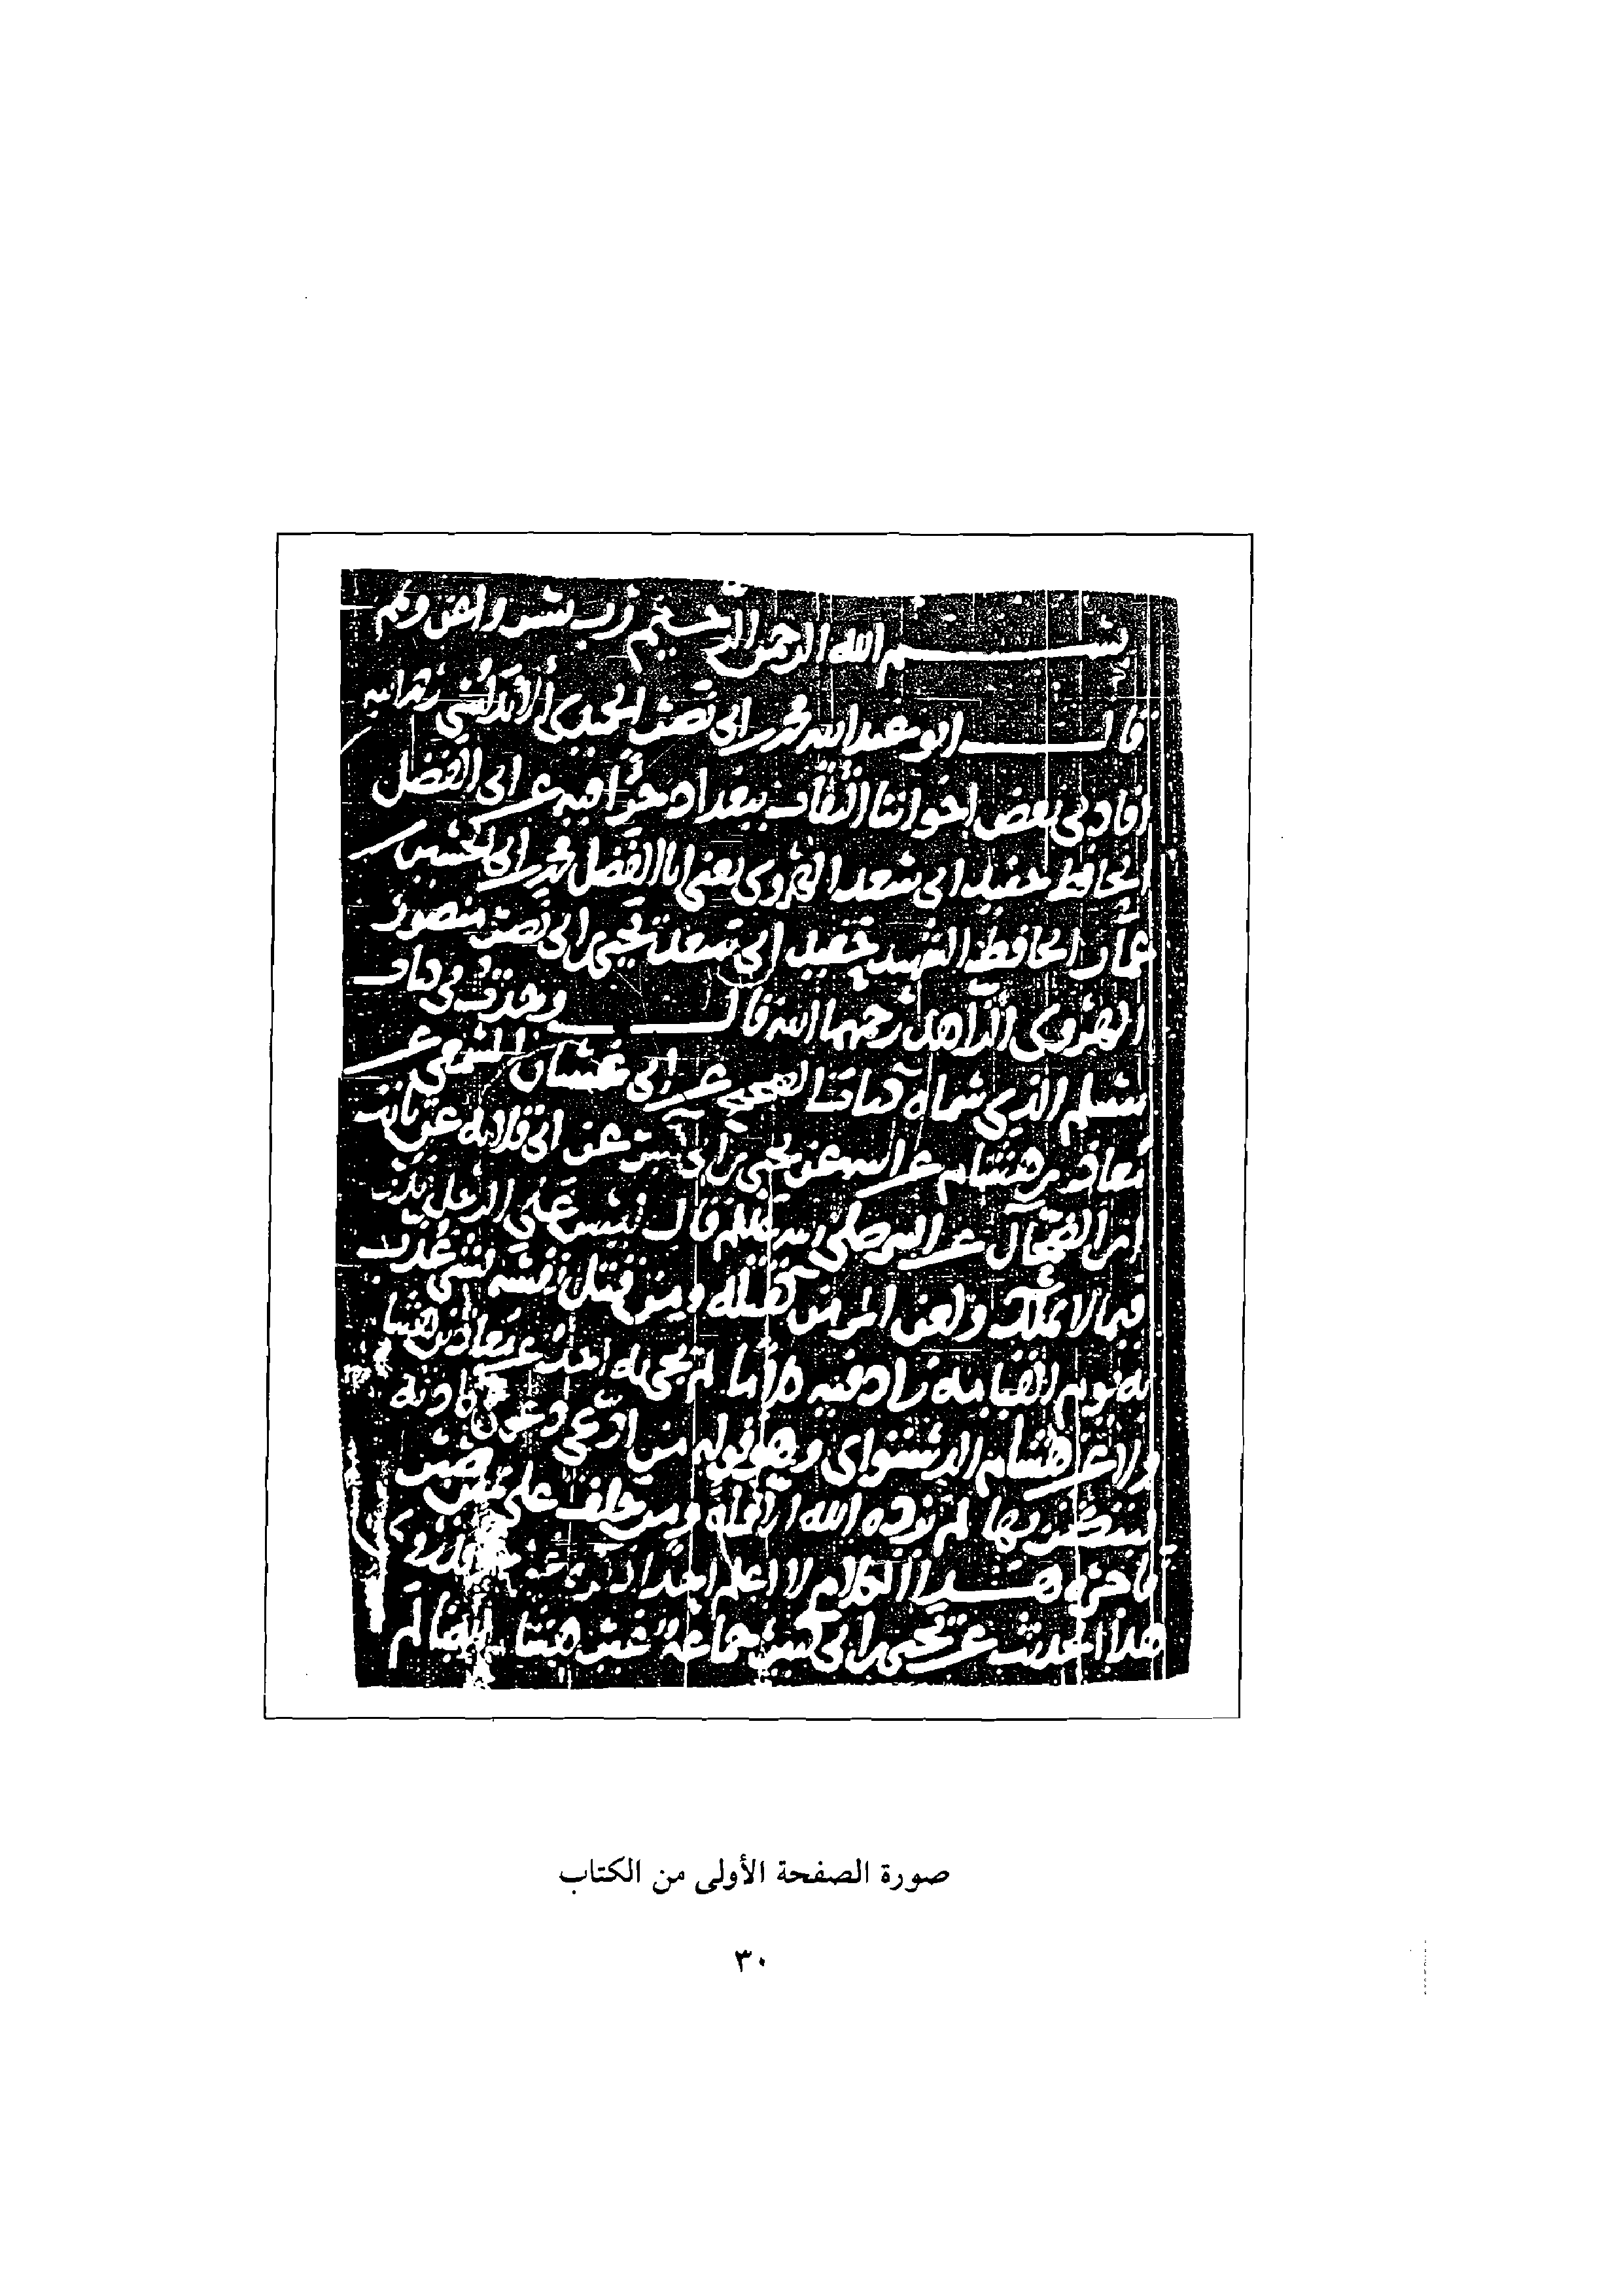 بسم الله الرحمن الرحيم رب يسر واعن وتمم
قال ابو عبد الله محمد بن ابي نصر الحميدي الاندلسي
افادني بعض اخواننا الثقات ببغداد جزءا فيه عن ابي الفضل
الحافظ حفيد ابي سعد الهروي يعني ابا الفضل محمد بن ابي الحسين بن
عمار الحافظ الشهيد حفيد ابي سعد يحيى بن ابي نصر منصور
الهروي الزاهد رحمهما الله قال وجدت في كتاب
مسلم الذي سماه كتاب الصحيح عن ابي غسان المسمعي عن
معاذ بن هشام عن ابيه عن يحيى بن ابي كثير عن ابي قلابة عن ثابت
ابن الضحاك عن النبي صلى الله عليه وسلم قال ليس على الرجل نذر
فيما لا يملك ولعن المؤمن كقتله ومن قتل نفسه بشي عذب
به يوم القيامة زاد فيه كلاما لم يجئ به احد عن معاذ بن هشام
ولا عن هشام الدستوائي وهو قوله من ادعى دعوى كاذبة
ليتكثر بها لم يزده الله الا قلة ومن حلف على يمين صبر
فاجرة وهذا الكلام لا اعلم احدا
هذا الحديث عن يحيى بن ابي كثير جماعة غير هشام ايضا لم
صورة الصفحة الأولى من الكتاب
٣٠